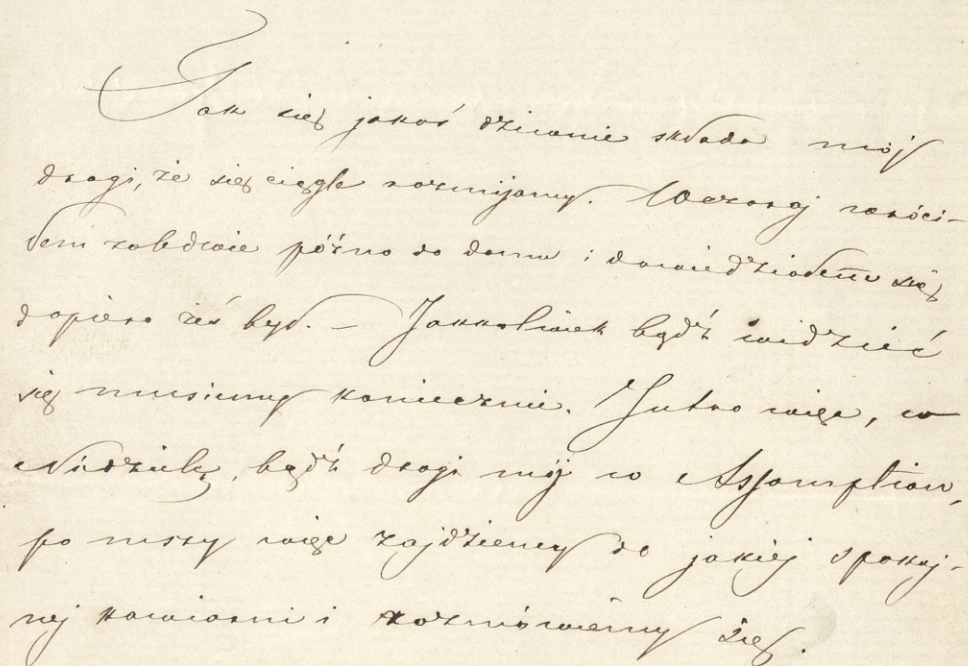 Tak się jakoś dziwnie składa mój
drogi, że się ciągle rozmijamy. Wczoraj wróci-
łem zaledwie późno do domu i dowiedziałem się
dopiero żeś był. – Jakkolwiek bądź widzieć
się musimy koniecznie. Jutro więc, w
Niedzielę, bądź drogi mój w Assomption,
po mszy więc zajdziemy do jakiej spokoj-
nej kawiarni i rozmówiemy się.